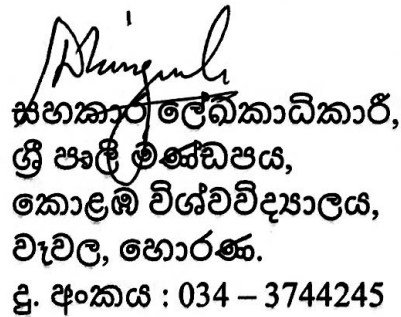 සහකාර ලේඛකාධිකාරී,
ශ්‍රී පාලි මණ්ඩපය,
කොළඹ විශ්වවිද්‍යාලය,
වෑවල, හොරණ.
දු. අංකය : 034 – 3744245